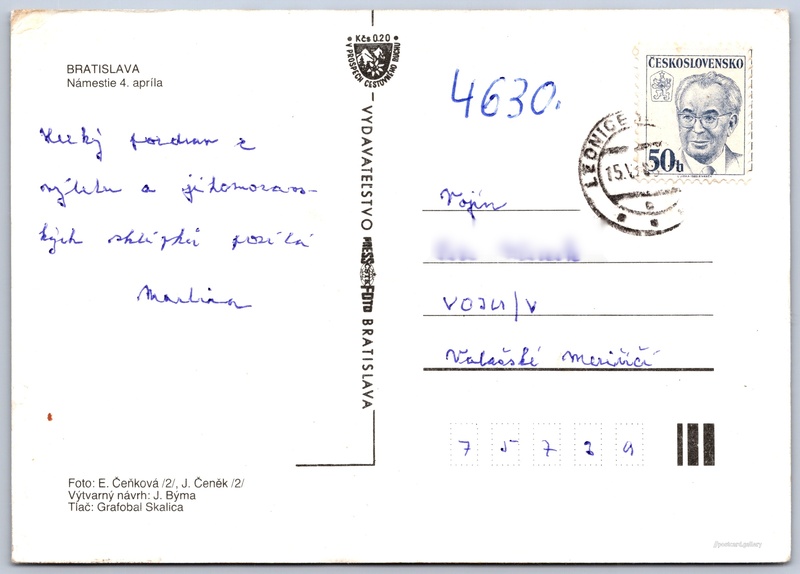 BRATISLAVA
Námestie 4. apríla
Kčs 0.20
V PROSPECH CESTOVNÉHO RUCHU
4630.
ČESKOSLOVENSKO
50 h
LEDNICE
15.
Hezký pozdrav z
výletu a jihomorav-
kých sklípků posílá
Martina
VYDAVATEĽSTVO PRESSFOTO BRATISLAVA
Vojín
VOJU/V
Valašské Meziříčí
7 5 7
Foto: E. Čeňková /2/, J. Čeněk /2/
Výtvarný návrh: J. Býma
Tlač: Grafobal Skalica
//postcard.gallery